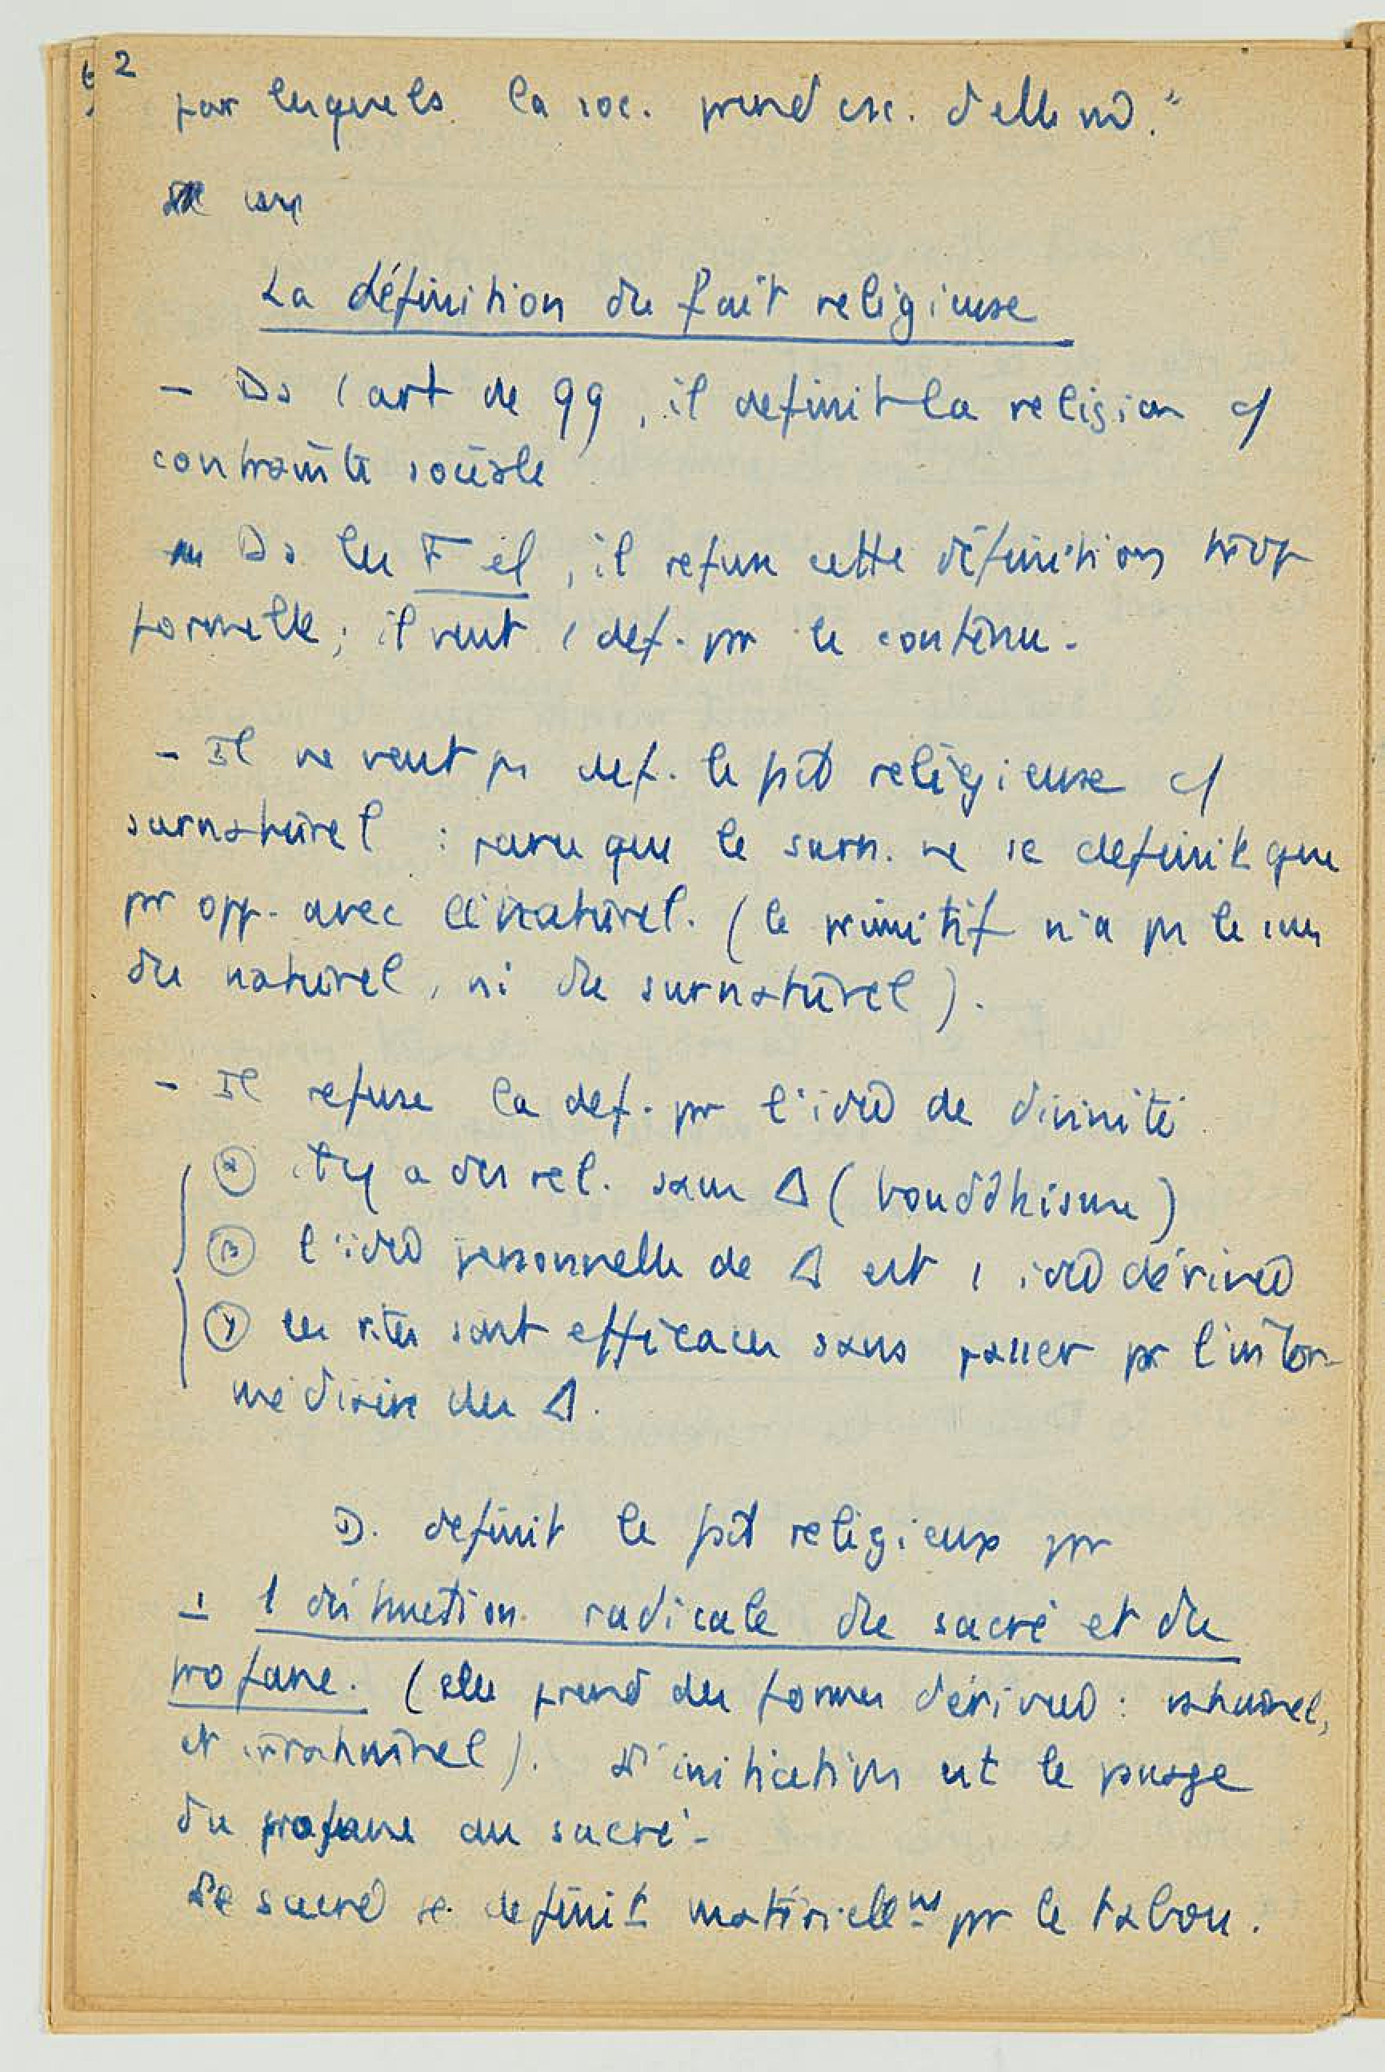 2
par lesquels la soc. prend csc. d'elle m̂.”
La définition du fait religieuse
– Ds l'art de 99, il definit la religion c/
contrainte sociale
Ds les F el, il refuse cette définition trop
formelle ; il veut 1 def. pr le contenu.
– Il ne veut ps def. le fait religieuse c/
surnaturel : parce que le surn. ne se definit que
pr opp. avec le naturel. (le primitif n'a ps le sens
du naturel, ni du surnaturel).
– Il refuse la def. pr l'idée de divinité.
α il y a des rel. sans Δ (bouddhisme)
β l'idée personnelle de Δ est 1 idée dérivée
γ les rites sont efficaces sans passer pr l'inter-
médiaire des Δ.
D. definit le fait religieux pr
– 1 distinction radicale du sacré et du
profane. (elle prend des formes dérivées : naturel,
et irrationnel). L'initiation est le passage
du profane au sacré.
Le sacré se definit matériellemt pr le tabou.